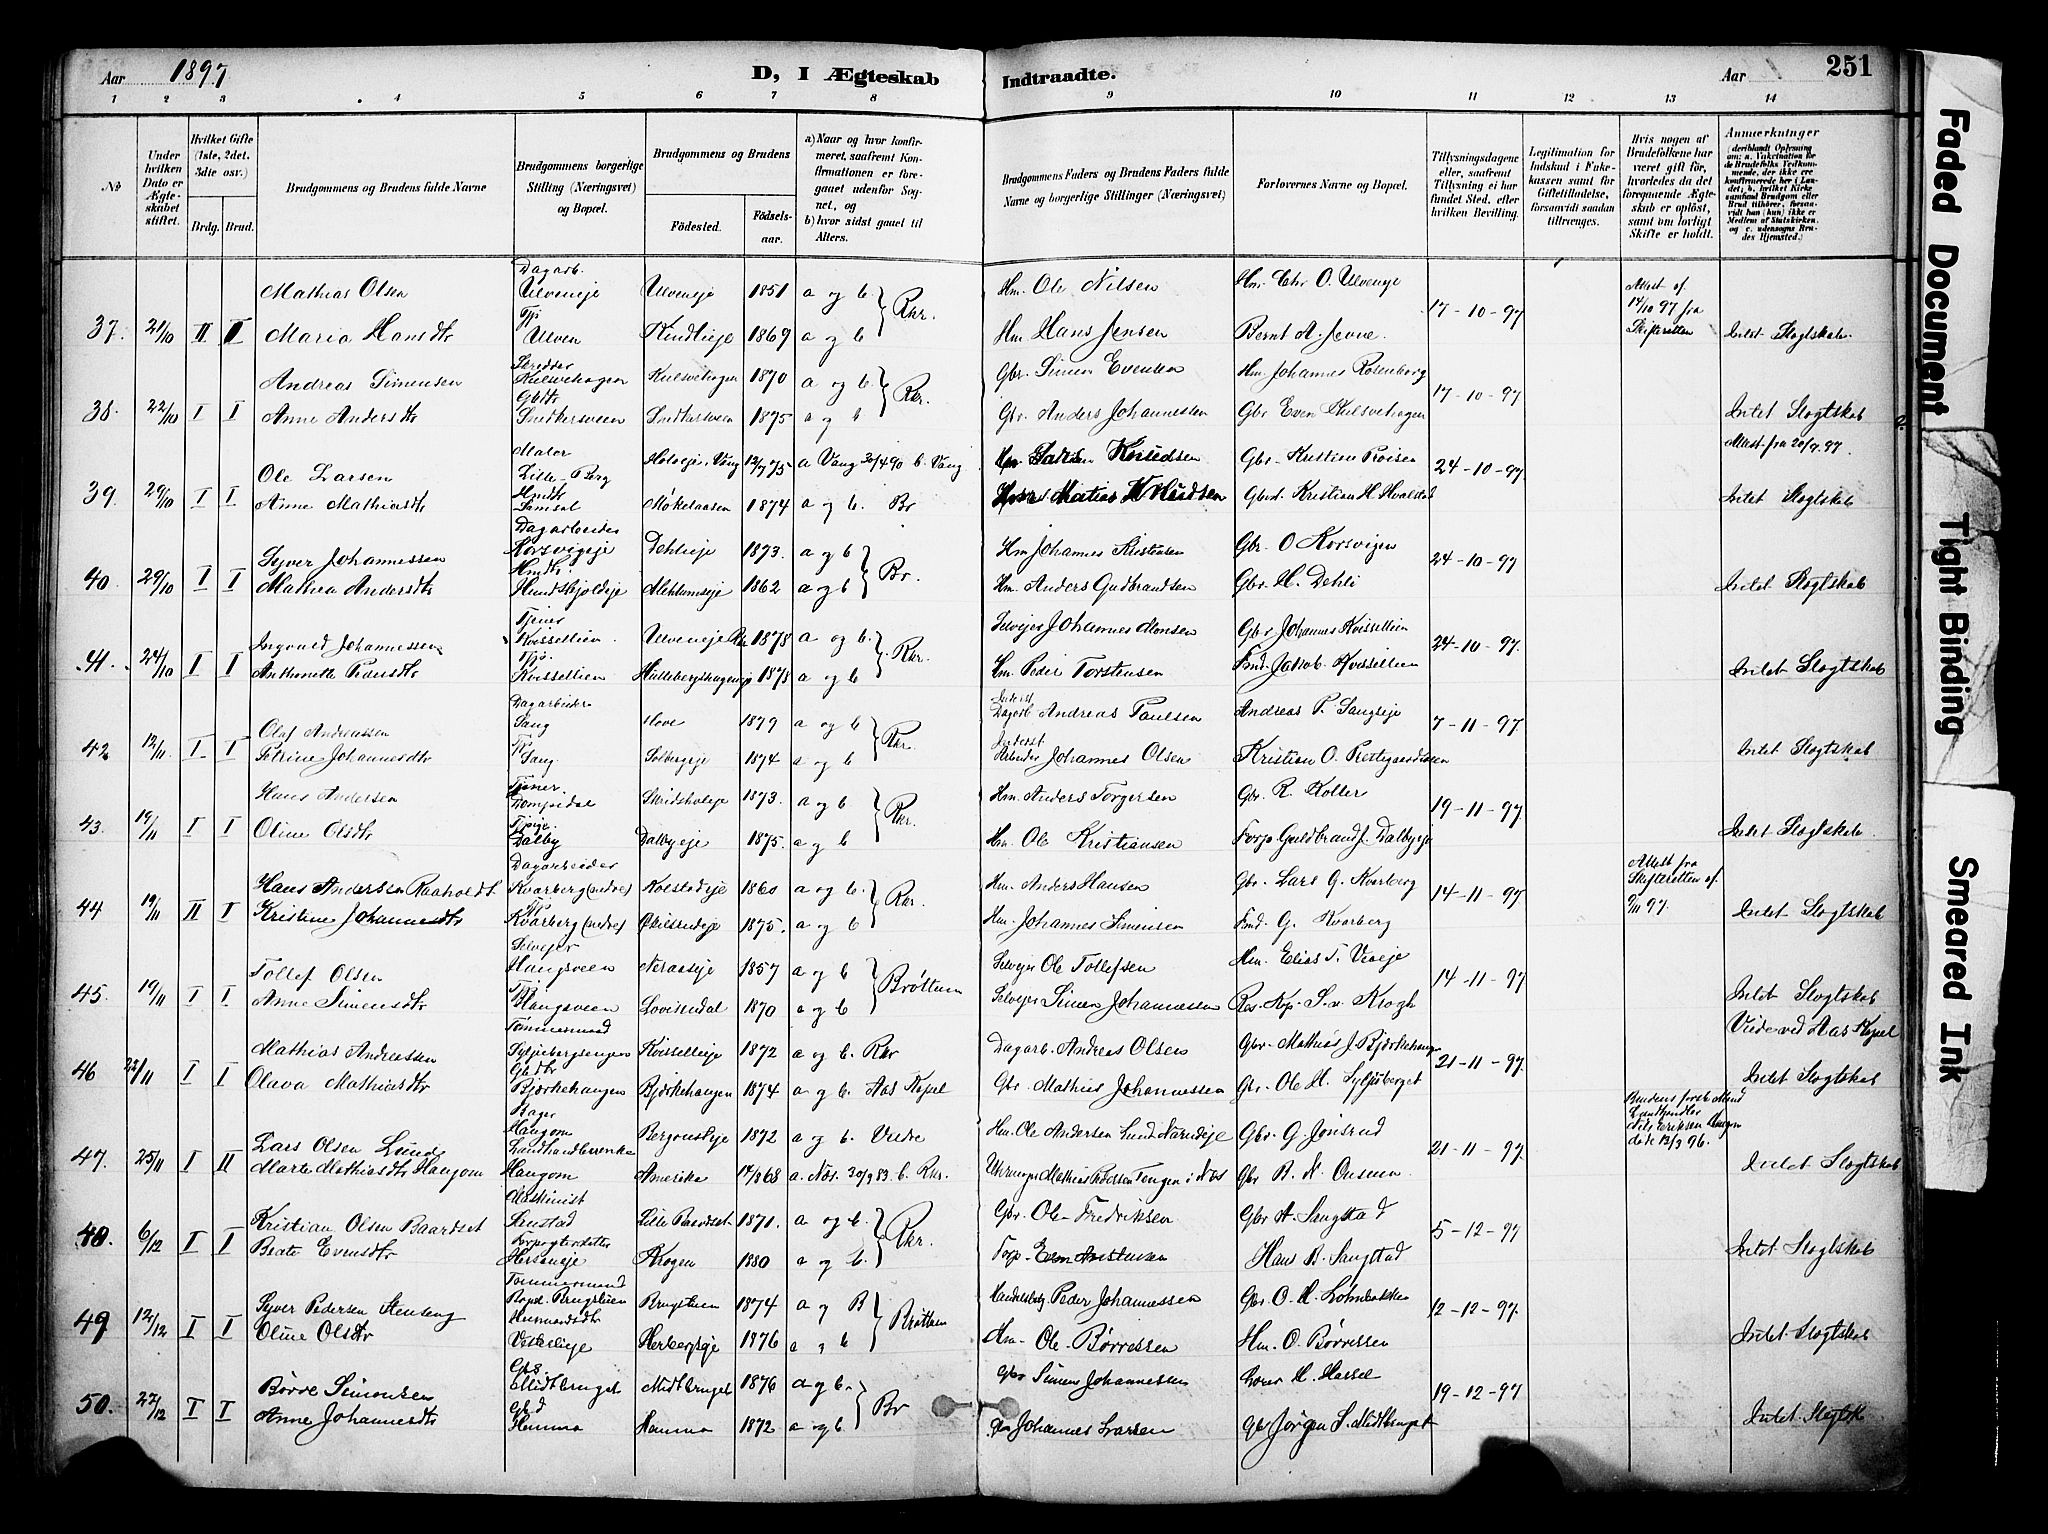 Aar 1897 D, I Ægteskab Indtraadte. Aar 251
1 2 3 4 5 6 7 8 9 10 11 12 13 14
No
Under hvilken Dato er Ægteskabet stiftet.
Hvilket Gifte (1ste, 2det, 3die osv.)
Brdg. Brud.
Brudgommens og Brudens fulde Navne
Brudgommens borgerlige Stilling (Næringsvei) og Bopæl.
Brudgommens og Brudens
Fødested.
Fødselsaar.
a) Naar og hvor konfirmeret, saafremt Konfirmationen er foregaaet udenfor Sognet, og
b) hvor sidst gaaet til Alters.
Brudgommens Faders og Brudens Faders fulde Navne og borgerlige Stillinger (Næringsvei)
Forlovernes Navne og Bopæl.
Tillysningsdagene eller, saafremt Tillysning ei har fundet Sted, efter hvilken Bevilling.
Legitimation for Indskud i Enkekassen samt for Giftetilladelse, forsaavidt saadan tiltrænges.
Hvis nogen af Brudefolkene har været gift før, hvorledes da det foregaaende Ægteskab er opløst, samt om lovligt Skifte er holdt.
Anmærkninger (deriblandt Oplysning om: a. Vakcination for de Brudefolks Vedkommende, der ikke ere konfirmerede her i Landet; b. hvilket Kirkesamfund Brudgom eller Brud tilhører, forsaavidt han (hun) ikke er Medlem af Statskirken, og c. udensogns Brudes Hjemsted.)
Dagarb.
Mathias Olsen Ulveneje Ulveneje 1851 a og b Rkr. Hm. Ole Nilsen Hm. Chr. O. Ulveneje
37. 21/10 II II Maria Hansdtr Tj. Ulven Kindlieje 1869 a og b Hm Hans Jensen Bernt A. Jevne. 17-10-97 Attest af 14/10 97 fra Skifteretten Intet Slegtskab.
Skredder
Andreas Simensen Kulsvehagen Kulsvehagen 1870 a og b. Rkr. Gbr. Simen Evensen Hm. Johannes Rosenborg
38. 22/10 I I Anne Andersdtr Gbdtr Snekkersveen Snekkersveen 1875 a og b Gbr Anders Johannessen Gbr Even Kulsvehagen 17-10-97 Intet Slegtskab
Maler Attest fra 20/9 97.
Ole Larsen Lille-Berg Vang 12/7 75 a Vang 30/4 90 b. Vang Knudsen Gbr. Kristian Prøisen
39. 29/10 I I Anne Mathiasdtr Hmdtr Samsal Møkelaasen 1874 a og b. Br Kristian H. Hvalstad 24-10-97 Intet Slegtskab
Dagarbeider
Syver Johannessen Korsvigeje Dehlieje 1873. a og b Br. Hm Johannes Kristensen Gbr. O Korsvigen
40. 29/10 I I Mathea Andersdtr Hmdtr. Hundskjoldeje Mehlumseje 1862 a og b Hm. Anders Gudbrandsen Gbr. H. Dehli 24-10-97 Intet Slegtskab
Tjener
Ingvald Johannessen Kvissellien Ulveneje Rkr 1878 a og b. Rkr. Selvejer Johannes Monsen Gbr Johannes Kvissellien
41. 24/10 I I Anthonette Pedersdtr Kvissellien 1878 a og b Hm. Peder Torstensen Jakob Kvissellien 24-10-97 Intet Slegtskab
Dagarbeider
Olaf Andreassen Sang Hove 1879 a og b Rkr. Inderst Dagarb Andreas Paulsen Andreas P. Sangeje
42 12/11. I I Petrine Johannesdtr Tj. Sang Solbergeje 1874 a og b Inderst Arbeider Johannes Olsen Kristian O. 7-11-97. Intet Slegtskab
Tjener.
Hans Andersen 1873. a og b Rkr. Hm. Anders Torgersen Gbr. R. Koller
43. 19/11 I I Oline Olsdtr Dalby Dalbyeje 1875. a og b Hm. Ole Kristiansen Forp Guldbrand J. Dalbyeje 19-11-97 Intet Slegtskab.
Dagarbeider
Hans Andersen Raaholdt Kvarberg (nedre) Kolstadeje 1860 a og b. Rkr. Hm. Anders Hansen Gbr. Lars G. Kvarberg
44 19/11 II I Kristine Johannesdtr Tj. Kvarberg (nedre) 1875. a og b Hm. Johannes Simensen G. Kvarberg 14-11-97 Attest fra Skifteretten af 9/11 97. Intet Slegtskab
Selvejer
Tollef Olsen Haugsveen 1857 a og b Brøttum Selvejer Ole Tollefsen Hm. Elias T. Vieeje
45. 19/11 I I Anne Simensdtr Tj. Haugsveen Lovisendal 1870 a og b Selvejer Simen Johannessen Res. Kap. S. v. Krogh 14-11-97 Intet Slegtskab
Tømmermand Viede ved Aas Kapel
Mathias Andreassen Syljubergsengen Kvisselleje 1872 a og b. Rkr Dagarb. Andreas Olsen Gbr. Mathias J. Bjørkehaugen
46 25/11 I I Olava Mathiasdtr Gbdtr Bjørkehaugen Bjørkehaugen 1874 a og b. Aas Kapel Gbr. Mathias Johannessen Gbr. Ole H. Syljuberget 21-11-97. Intet Slegtskab
Bager
Lars Olsen Lunde Haugom 1872 a og b. Vedre Hm. Ole Andersen Gbr. G. Jønsrud
47. 25/11 I II Marte Mathiasdtr Haugom Landhandlerenke Haugom Amerika 14/8 68 a. Næs. 30/9 83. b. Rkr. Mathias Pedersen Tangen i Næs Gbr 21-11-97 Brudens første Mand Landhandler Nils Eriksen Haugom døde 12/9 96. Intet Slegtskab
Maskinist
Kristian Olsen Baardset Lille Baardset 1871. a og b. Rkr. Gbr. Ole Fredriksen Gbr A. Sangstad
48. 6/12 I I Beate Evensdtr Forpagterdatter Krogen 1880 a og b. Forp. Even Kristensen Hans B. Sangstad 5-12-97 Intet Slegtskab
Tømmermand
Syver Pedersen Stenseng Brugstuen Brugstuen 1874 a og B Brøttum Peder Johannessen Gbr O. H. Lohnbakken
49 12/12 I I Oline Olsdtr Husmandsdtr Vesterlieje Herbergseje 1876 a og b Hm. Ole Børressen Hm. O. Børressen 12-12-97. Intet Slegtskab
Børre Simonsen Gbs Midtbruget Midtbruget 1876 a og b. Br Gbr Simen Johannessen Lærer H. Hassel
50. 27/12 I I Anne Johannesdtr Gbd Hemma Hemma 1872 a og b Gbr Johannes Larsen Gbr Jørgen S. Midtbruget 19-12-97 Intet Slegtsk
Faded Document
Tight Binding
Smeared Ink